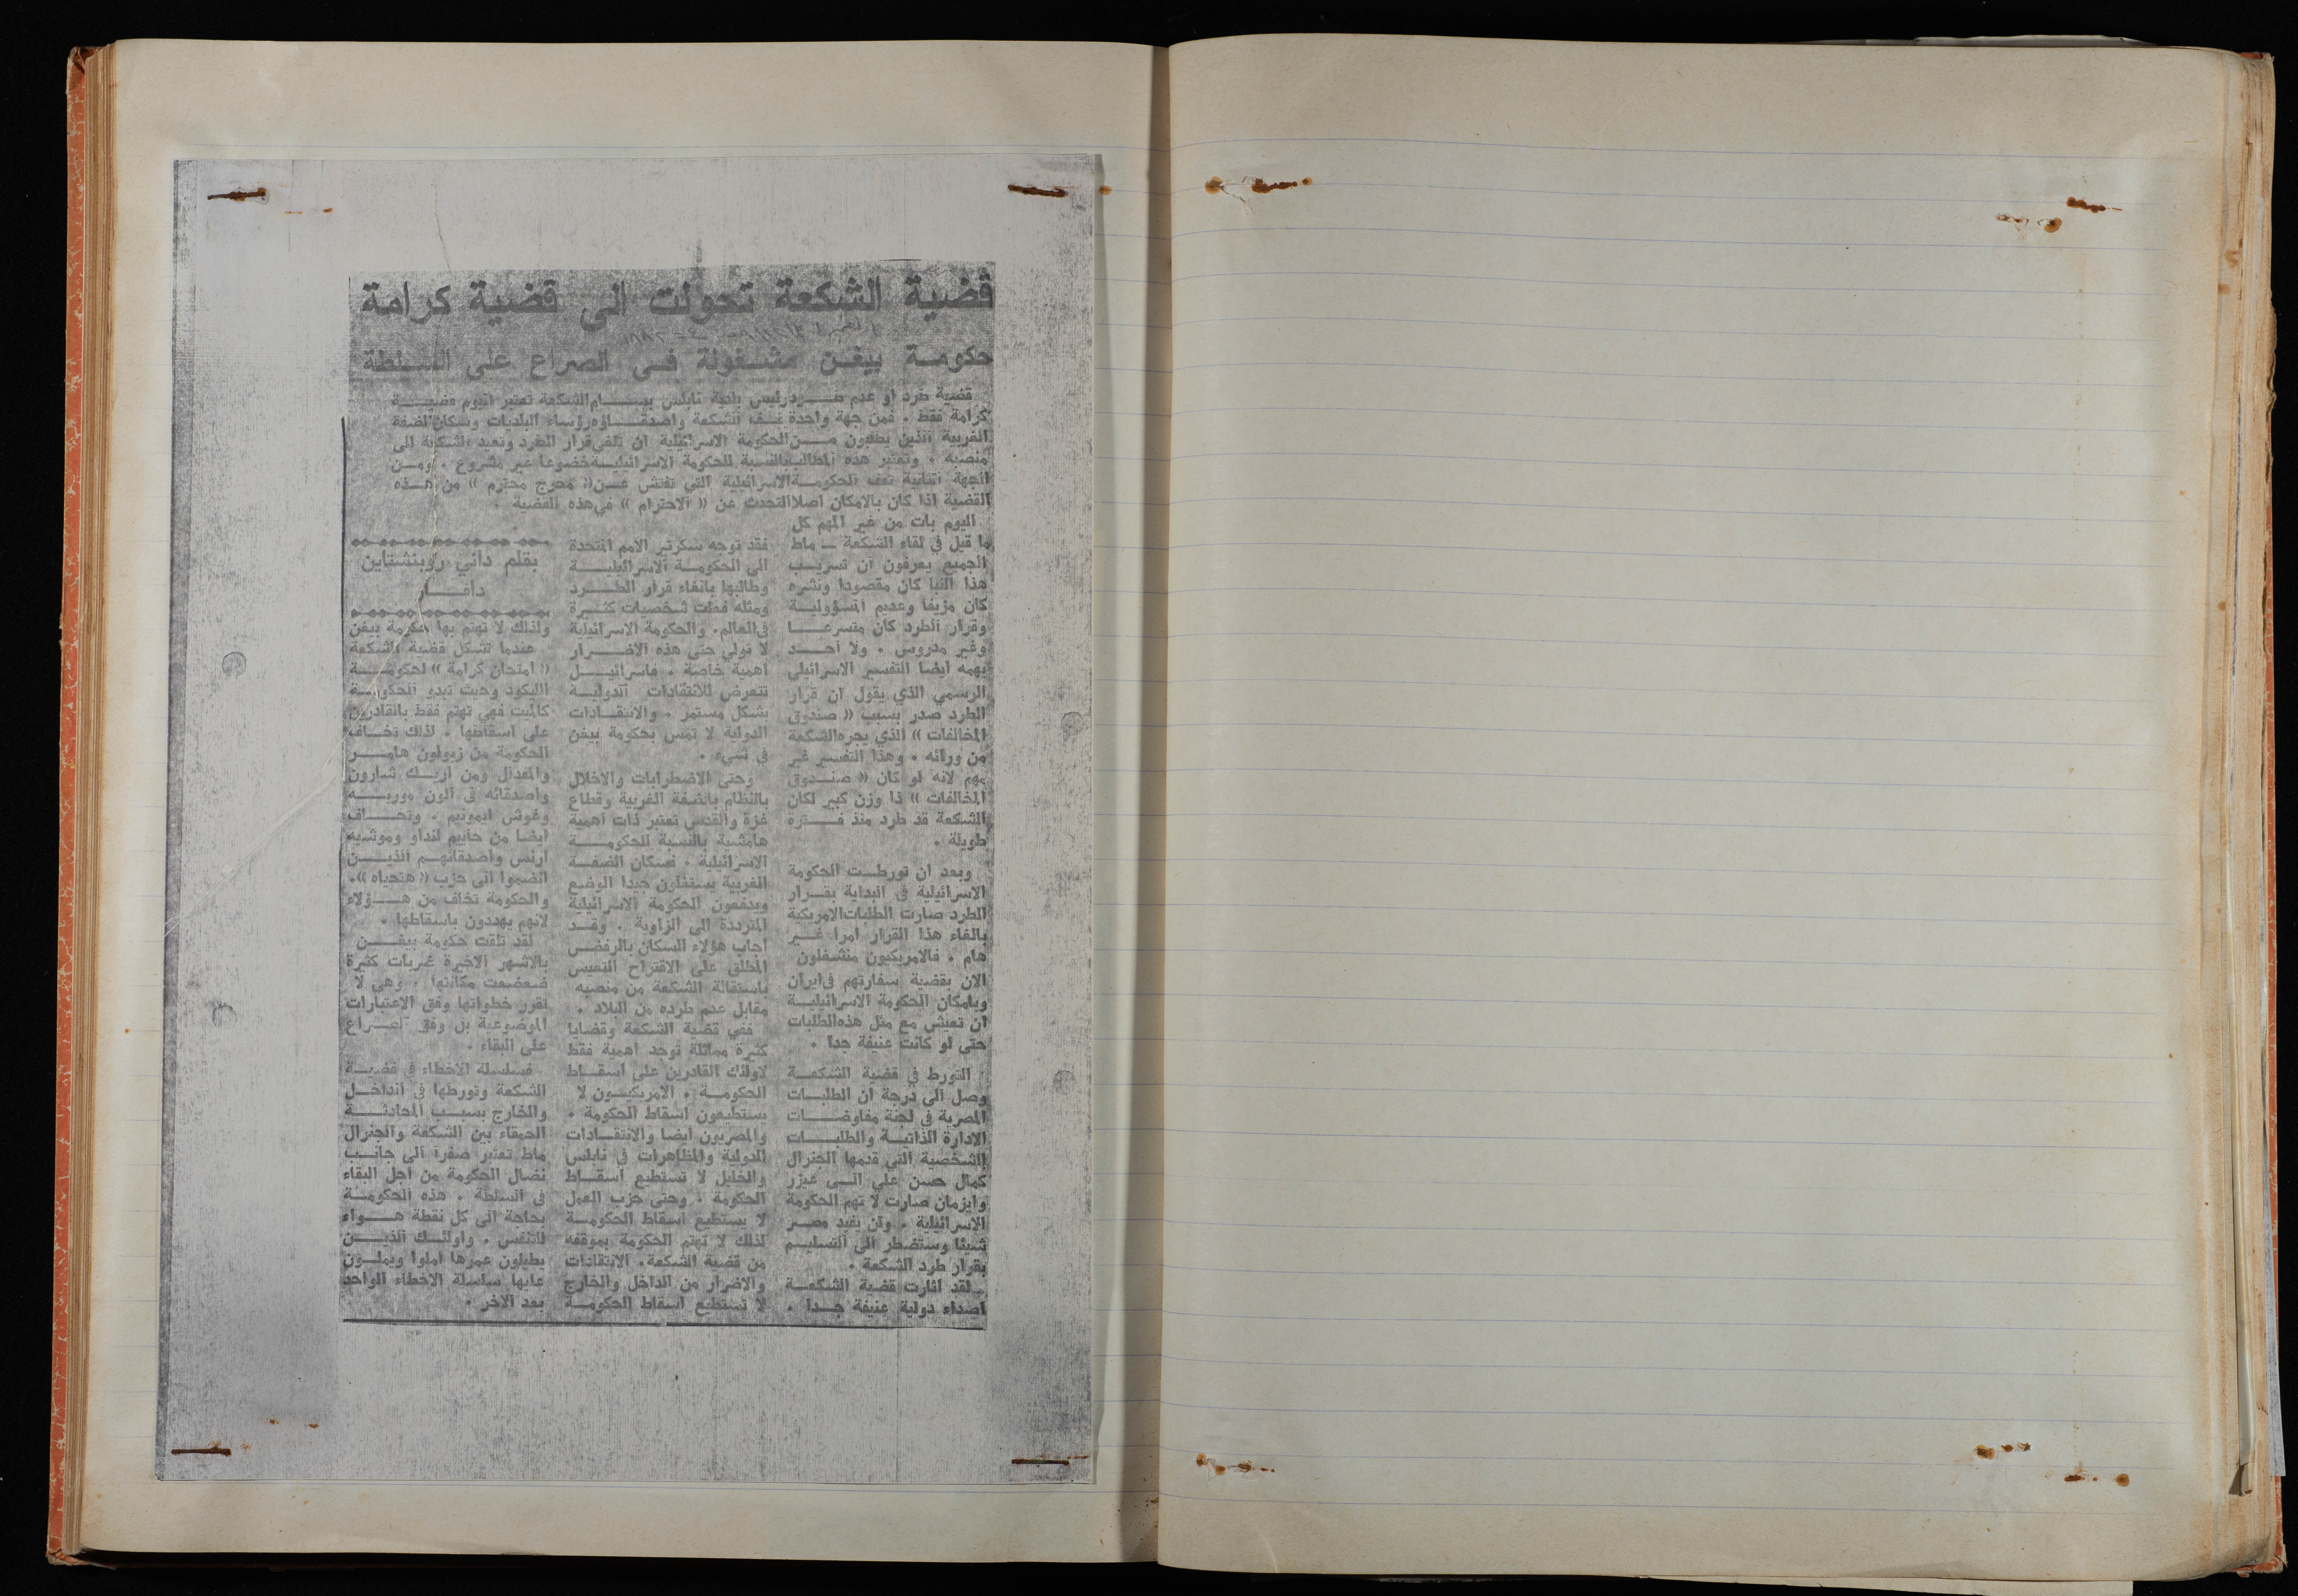 قضية الشكعة تحولت الى قضية كرامة
حكومـة بيغـن مشـغولة فـى الصراع على السـلطة
قضية طرد او عدم طـــرد رئيس بلدية نابلس بســـام الشكعة تعتبر اليوم قضيـــة
كرامة فقط . فمن جهة واحدة تقف الشكعة واصدقـــاؤه رؤساء البلديات وسكان الضفة
الغربية الذين يطلبون مـــن الحكومة الاسرائيلية ان تلغي قرار الطرد وتعيد الشكعة الى
منصبه . وتعتبر هذه المطالب بالنسبة للحكومة الاسرائيليـــة خضوعا غير مشروع . ومـن
الجهة الثانية تقف الحكومـــة الاسرائيلية التي تفتش عـــن (( مخرج محترم )) من هـــذه
القضية اذا كان بالامكان اصلا التحدث عن (( الاحترام )) في هذه القضية .
اليوم بات من غير المهم كل
ما قيل في لقاء الشكعة ـ ماط
الجميع يعرفون ان تسريـــب
هذا النبا كان مقصودا ونشره
كان مزيفا وعديم المسؤوليـة
وقرار الطرد كان متسرعـــا
وغير مدروس . ولا احـــد
يهمه ايضا التفسير الاسرائيلي
الرسمي الذي يقول ان قرار
الطرد صدر بسبب (( صندوق
المخالفات )) الذي يجره الشكعة
من ورائه . وهذا التفسير غير
مهم لانه لو كان (( صنـــدوق
المخالفات )) ذا وزن كبير لكان
الشكعة قد طرد منذ فـــترة
طويلة .
وبعد ان تورطـــت الحكومة
الاسرائيلية في البداية بقـــرار
الطرد صارت الطلبات الامريكية
بالغاء هذا القرار امرا غـــير
هام . فالامريكيون منشغلون
الان بقضية سفارتهم في ايران
وبامكان الحكومة الاسرائيليـــة
ان تعيش مع مثل هذه الطلبات
حتى لو كانت عنيفة جدا .
التورط في قضية الشكعـــة
وصل الى درجة ان الطلبـــات
المصرية في لجنة مفاوضـــات
الادارة الذاتيـــة والطلبـــات
الشخصية التي قدمها الجنرال
كمال حسن علي الـــى عيزر
وايزمان صارت لا تهم الحكومة
الاسرائيلية . ولن يفيد مصـــر
شيئا وستضطر الى التسليـــم
بقرار طرد الشكعة .
لقد اثارت قضية الشكعـــة
اصداء دولية عنيفة جـــدا .
فقد توجه سكرتير الامم المتحدة
الى الحكومـــة الاسرائيليـــة
وطالبها بالغاء قرار الطـــرد
ومثله فعلت شخصيات كثـــيرة
في العالم. والحكومة الاسرائيلية
لا تولي حتى هذه الاضـــرار
اهمية خاصة . فاسرائيـــل
تتعرض للانتقادات الدوليـــة
بشكل مستمر . والانتقـــادات
الدولية لا تمس بحكومة بيغن
في شيء .
وحتى الاضطرابات والاخلال
بالنظام بالضفة الغربية وقطاع
غزة والقدس تعتبر ذات اهمية
هامشية بالنسبة للحكومـــة
الاسرائيلية . فسكان الضفـــة
الغربية يستغلون جيدا الوضع
ويدفعون الحكومة الاسرائيلية
المترددة الى الزاوية . وقـــد
اجاب هؤلاء السكان بالرفض
المطلق على الاقتراح التعيس
باستقالة الشكعة من منصبه
مقابل عدم طرده من البلاد .
ففي قضية الشكعة وقضايا
كثيرة مماثلة توجد اهمية فقط
لاولئك القادرين على اسقـــاط
الحكومـــة . الامريكيـــون لا
يستطيعون اسقاط الحكومة .
والمصريون ايضا والانتقـــادات
الدولية والمظاهرات في نابلس
والخليل لا تستطيع اسقـــاط
الحكومة . وحتى حزب العمل
لا يستطيع اسقاط الحكومـــة
لذلك لا تهتم الحكومة بموقفه
من قضية الشكعة. الانتقادات
والاضرار من الداخل والخارج
لا تستطيع اسقاط الحكومـــة
بقلم داني روبنشتاين
دافـــار
ولذلك لا تهتم بها حكومة بيغن
عندما تتشكل قضية الشكعة
(( امتحان كرامة )) لحكومـــة
الليكود وحيث تبدو الحكومـــة
كالميت فهي تهتم فقط بالقادرين
على اسقاطها . لذلك تخـــاف
الحكومة من زبولون هامـــر
والمفدال ومن اريـــك شارون
واصدقائه في الون موريـــه
وغوش ايمونيم . وتخـــاف
ايضا من حاييم لنداو وموشيه
ارنس واصدقائهـــم الذيـــن
انضموا الى حزب (( هتحياه )).
والحكومة تخاف من هـــؤلاء
لانهم يهددون باسقاطها .
لقد تلقت حكومة بيغـــن
بالاشهر الاخيرة ضربات كثيرة
ضعضعت مكانتها . وهي لا
تقرر خطواتها وفق الاعتبارات
الموضوعية بل وفق الصـــراع
على البقاء .
فسلسلة الاخطاء في قضيـــة
الشكعة وتورطها في الداخـــل
والخارج بسبـــب المحادثـــة
الحمقاء بين الشكعة والجنرال
ماط تعتبر صفرا الى جانـــب
نضال الحكومة من اجل البقاء
في السلطة . هذه الحكومـــة
بحاجة الى كل نقطة هـــواء
للتنفس . واولئـــك الذيـــن
يطيلون عمرها املوا ويملـــون
عليها سلسلة الاخطاء الواحد
بعد الاخر .